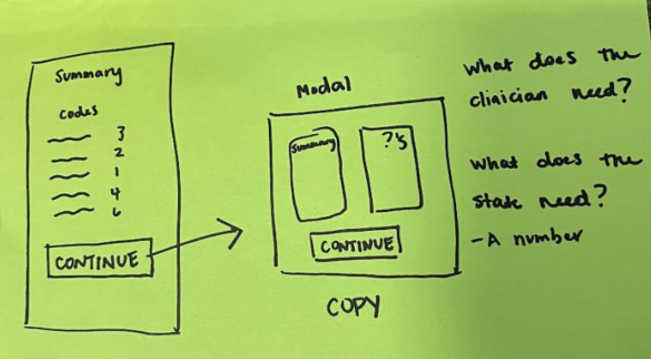 Summary
codes
3
2
1
4
6
CONTINUE
Modal
Summary
?'s
CONTINUE
COPY
What does the
clinician need?
What does the
state need?
- A number